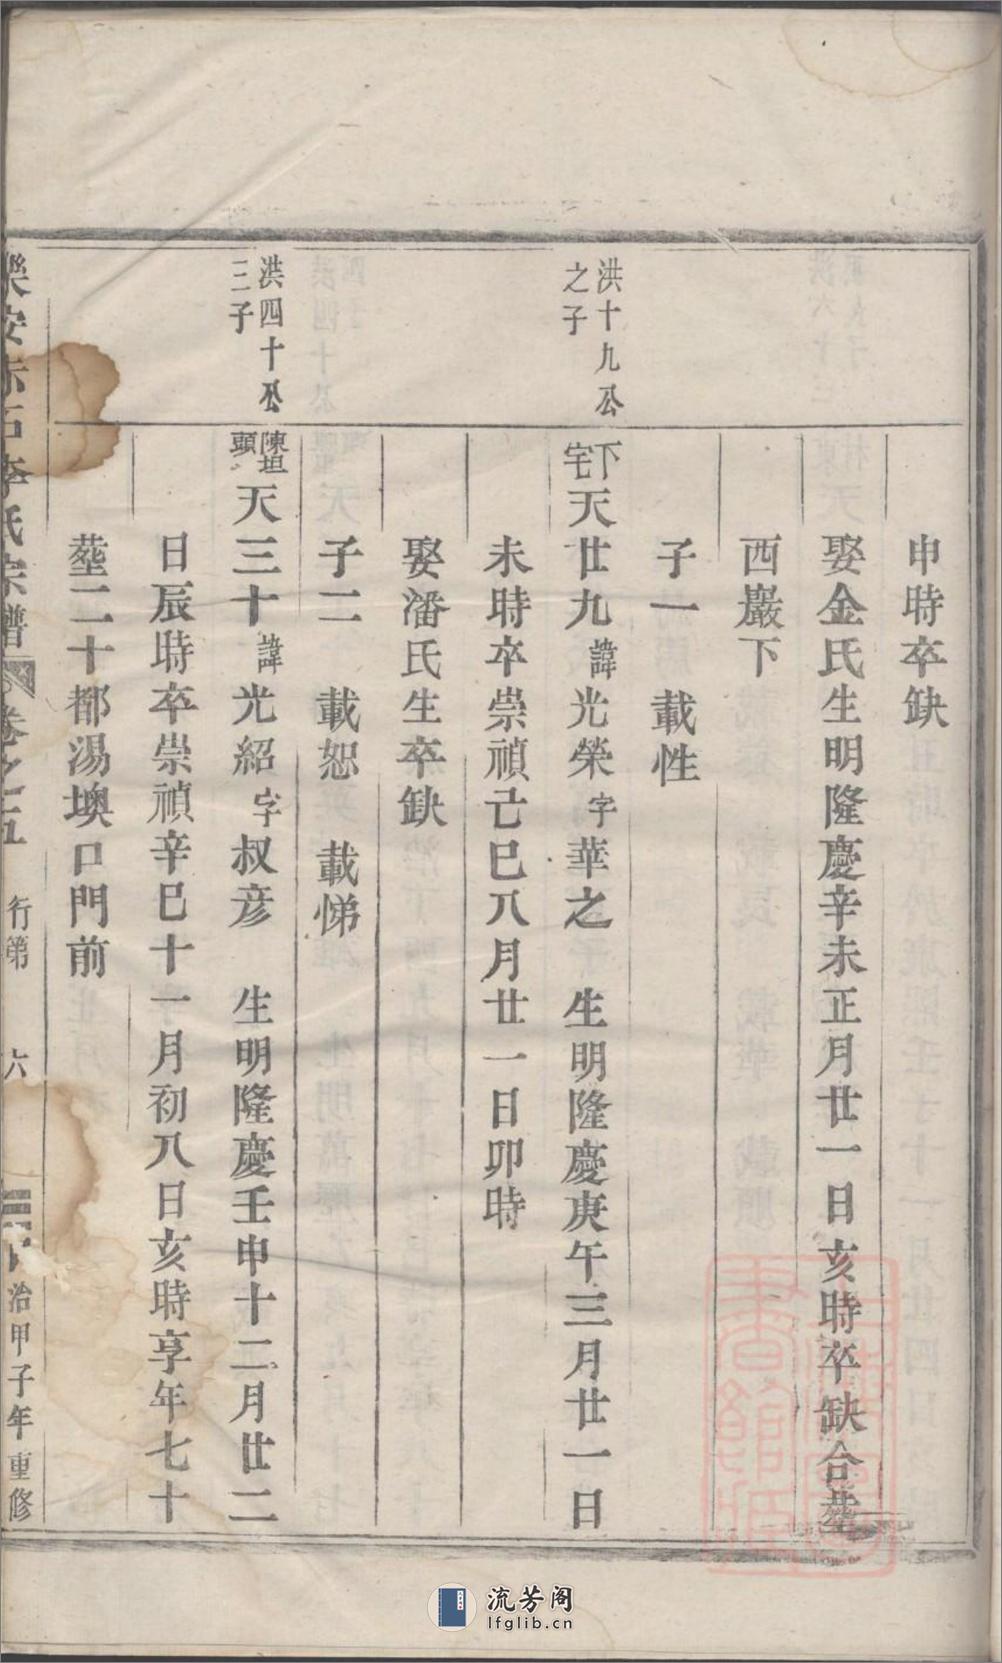 申時卒缺
娶金氏生明隆慶辛未正月廿一日亥時卒缺合塟
西巖下
子一 載性
洪十九公
之子
下宅天廿九諱光榮字華之 生明隆慶庚午三月廿一日
未時卒崇禎己巳八月廿一日卯時
娶潘氏生卒缺
子二 載恕 載悌
洪四十公
三子
陳坦頭天三十諱光紹字叔彦 生明隆慶壬申十二月廿二
日辰時卒崇禎辛巳十一月初八日亥時享年七十
塟二十都湯墺口門前
樂安赤石李氏宗譜 卷之五 行第 六 治甲子年重修
上海圖書館藏
流芳阁
lfglib.cn